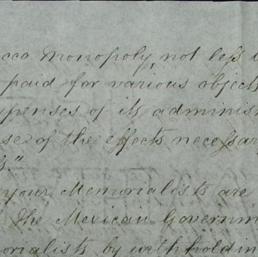 cco Monopoly, not less
paid for various object
penses of its adminis
se of the effects necessar
your Memorialists are
the Mexican Governm
orialists by withholdin